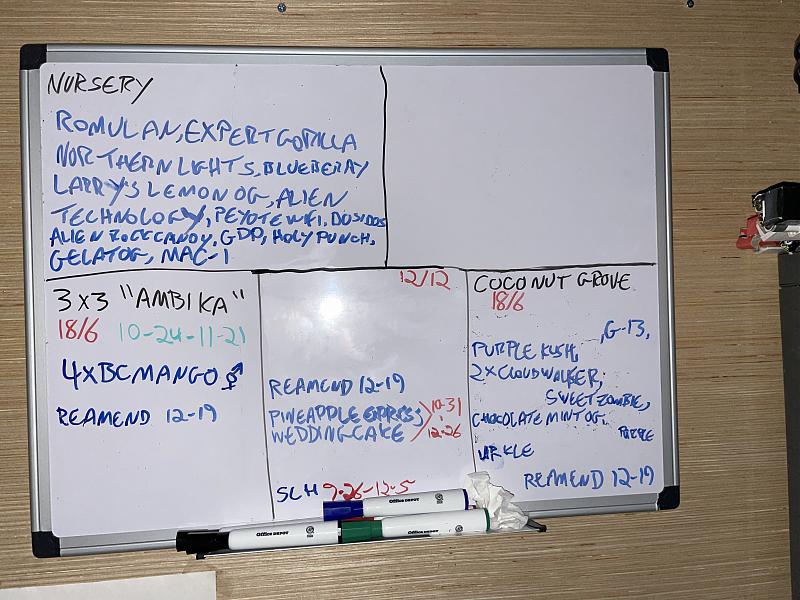 NURSERY
ROMULAN, EXPERT GORILLA
NORTHERN LIGHTS, BLUEBERRY
LARRY'S LEMON OG, ALIEN
TECHNOLOGY, PEYOTE WIFI, DOSIDOS
ALIEN ROCK CANDY, GDP, HOLY PUNCH,
GELATO G, MAC-1
3x3 "AMBIKA"
18/6 10-24-11-21
4XBCMANGO ⚥
REAMEND 12-19
12/12
REAMEND 12-19
PINEAPPLE EXPRESS 10-31
WEDDING CAKE 12-26
SLH 9-26-12-5
COCONUT GROVE
18/6
, G-13,
PURPLE KUSH,
2XCLOUDWALKER,
SWEET ZOMBIE,
CHOCOLATE MINT OG,
PURPLE
URKLE
REAMEND 12-19
Office DEPOT
Office DEPOT
Office DEPOT